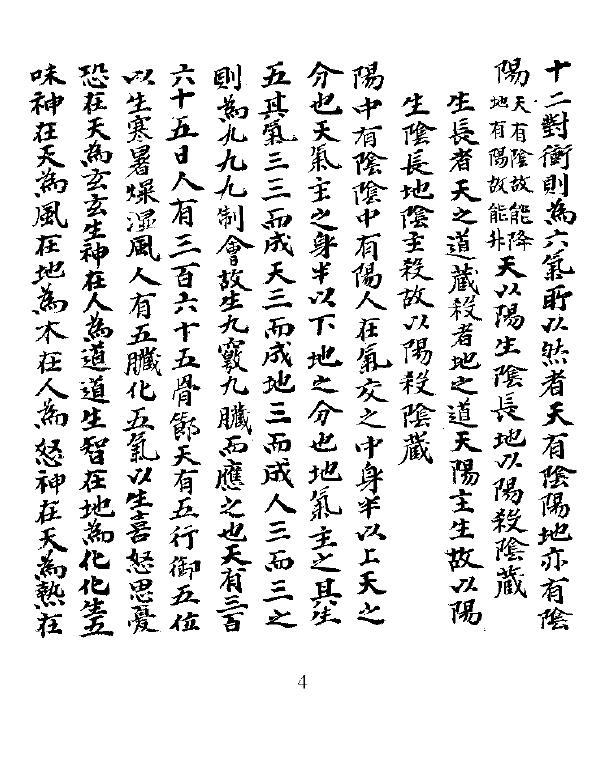 十二對衝則為六氣所以然者天有陰陽地亦有陰
陽天有陰故能降地有陽故能升天以陽生陰長地以陽殺陰藏
生長者天之道藏殺者地之道天陽主生故以陽
生陰長地陰主殺故以陽殺陰藏
陽中有陰陰中有陽人在氣交之中身半以上天之
分也天氣主之身半以下地之分也地氣主之其生
五其氣三三而成天三而成地三而成人三而三之
則為九九九制會故生九竅九臟而應之也天有三百
六十五日人有三百六十五骨節天有五行御五位
以生寒暑燥湿風人有五臟化五氣以生喜怒思憂
恐在天為玄玄生神在人為道道生智在地為化化生五
味神在天為風在地為木在人為怒神在天為熱在
4